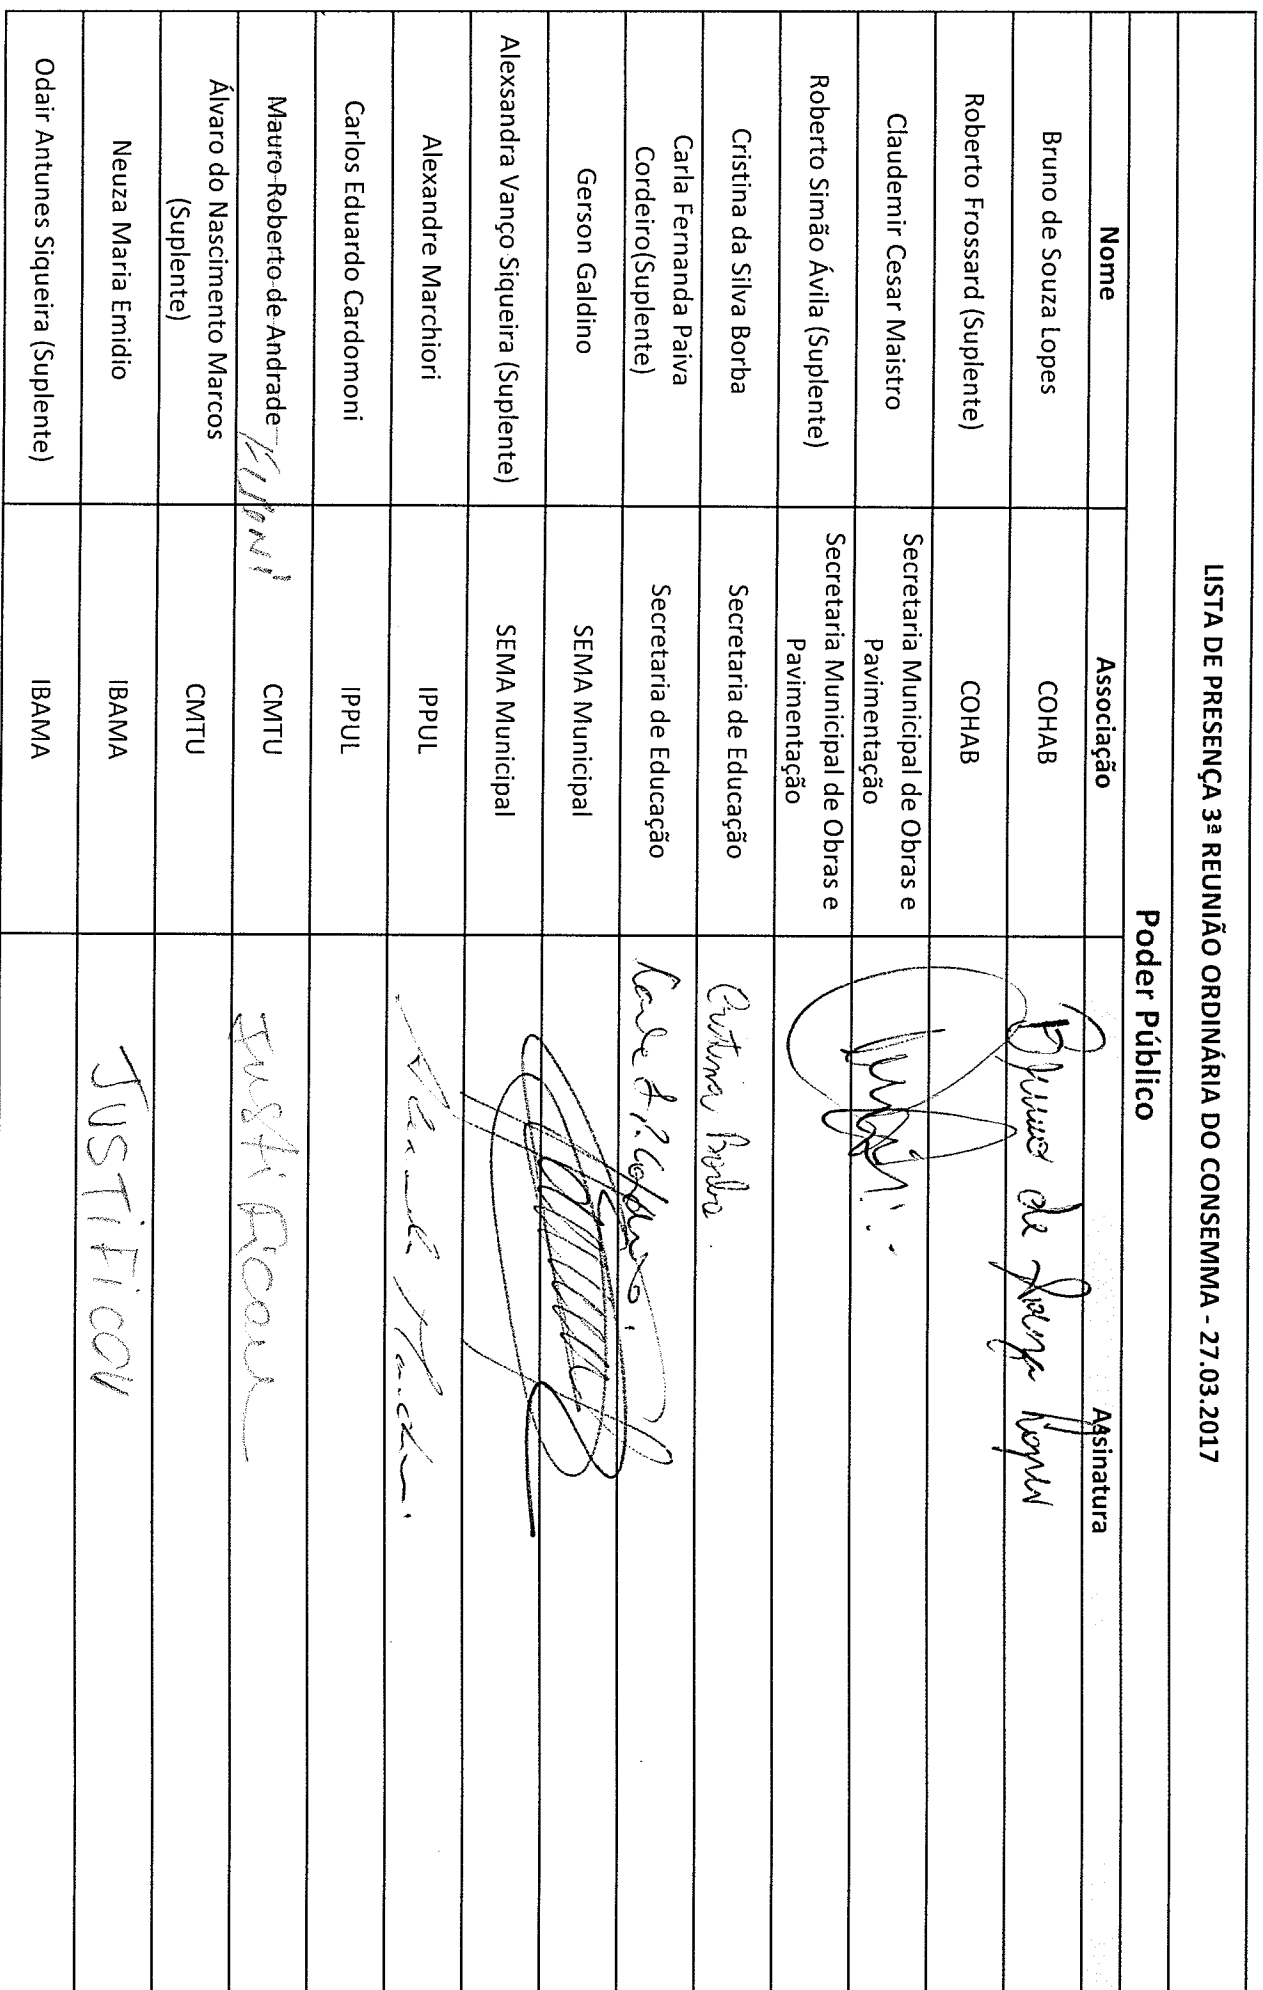 LISTA DE PRESENÇA 3ª REUNIÃO ORDINÁRIA DO CONSEMMA - 27.03.2017
Poder Público
Nome Associação Assinatura
Bruno de Souza Lopes COHAB Bruno de Souza Lopes
Roberto Frossard (Suplente) COHAB
Claudemir Cesar Maistro Secretaria Municipal de Obras e
Pavimentação
Roberto Simão Ávila (Suplente) Secretaria Municipal de Obras e
Pavimentação
Cristina da Silva Borba Secretaria de Educação Cristina Borba.
Carla Fernanda Paiva
Cordeiro(Suplente) Secretaria de Educação Carla F. P. Cordeiro.
Gerson Galdino SEMA Municipal
Alexsandra Vanço Siqueira (Suplente) SEMA Municipal
Alexandre Marchiori IPPUL Alexandre Marchiori
Carlos Eduardo Cardomoni IPPUL
Mauro Roberto de Andrade CMTU Justificou
Álvaro do Nascimento Marcos
(Suplente) CMTU
Neuza Maria Emidio IBAMA JUSTIFICOU
Odair Antunes Siqueira (Suplente) IBAMA